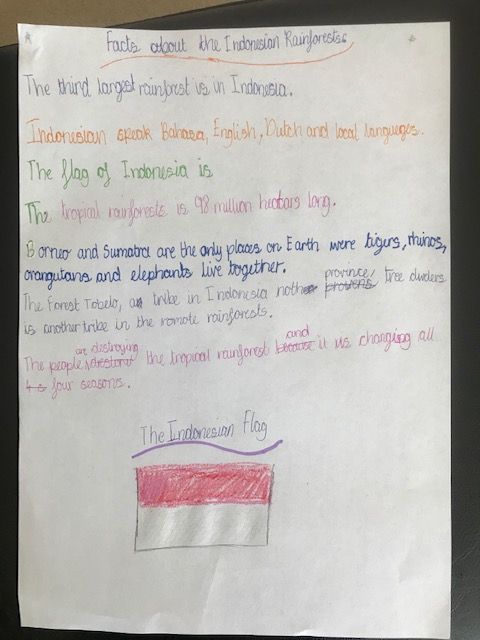 Facts about the Indonesian Rainforests
The third largest rainforest is in Indonesia.
Indonesian speak Bahasa, English, Dutch and local languages.
The flag of Indonesia is
The tropical rainforests is 98 million hectars long.
Borneo and Sumatra are the only places on Earth were tigers, rhinos,
orangutans and elephants live together.
The Forest Tobelo, a tribe in Indonesia north province, tree dwelers
is another tribe in the remote rainforests.
The people are destroying the tropical rainforest and it is changing all
four seasons.
The Indonesian Flag